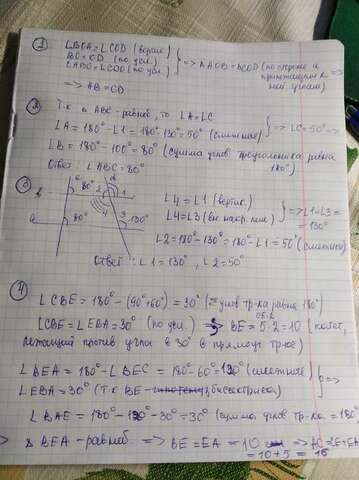 1) ∠BOA = ∠COD (вертик)
BO = OD (по усл.)
∠ABO = ∠COD (по усл.)
=> ∆AOB = ∆COD (по стороне и
прилежащим к
ней углам)
=> AB = CD
2) Т.к ∆ ABC - равноб, то ∠A = ∠C
∠A = 180° - ∠1 = 180° - 130° = 50° (смежные)
=> ∠C = 50° =>
∠B = 180° - 100° = 80° (сумма углов треугольника равна
180°)
Ответ: ∠ABC = 80°
3)
c
d
80°
2
1
b
4
a
80°
3
130°
∠4 = ∠1 (вертик.)
∠4 = ∠3 (вн. накр. леж)
=> ∠1 = ∠3 =
= 130°
∠2 = 180° - 130° = 180° - ∠1 = 50° (смежные)
Ответ: ∠1 = 130°, ∠2 = 50°
4)
∠CBE = 180° - (90° + 60°) = 30° (Σ углов тр-ка равна 180°)
∠CBE = ∠EBA = 30° (по усл.) => BE = 5·2 = 10 (катет,
лежащий против угла в 30° в прямоуг тр-ке)
∠BEA = 180° - ∠BEC = 180° - 60° = 120° (смежные)
∠EBA = 30° (т.к BE - биссектриса)
=>
∠BAE = 180° - 120° - 30° = 30° (сумма углов тр-ка = 180°
=> ∆ BEA - равноб => BE = EA = 10 => AC = CE + EA
= 10 + 5 = 15